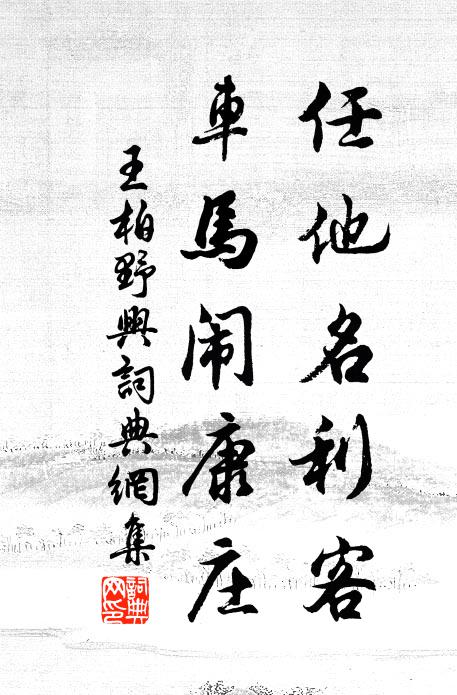 任他名利客
車馬闹康庄
王柏野興詞典網集
詞典網印